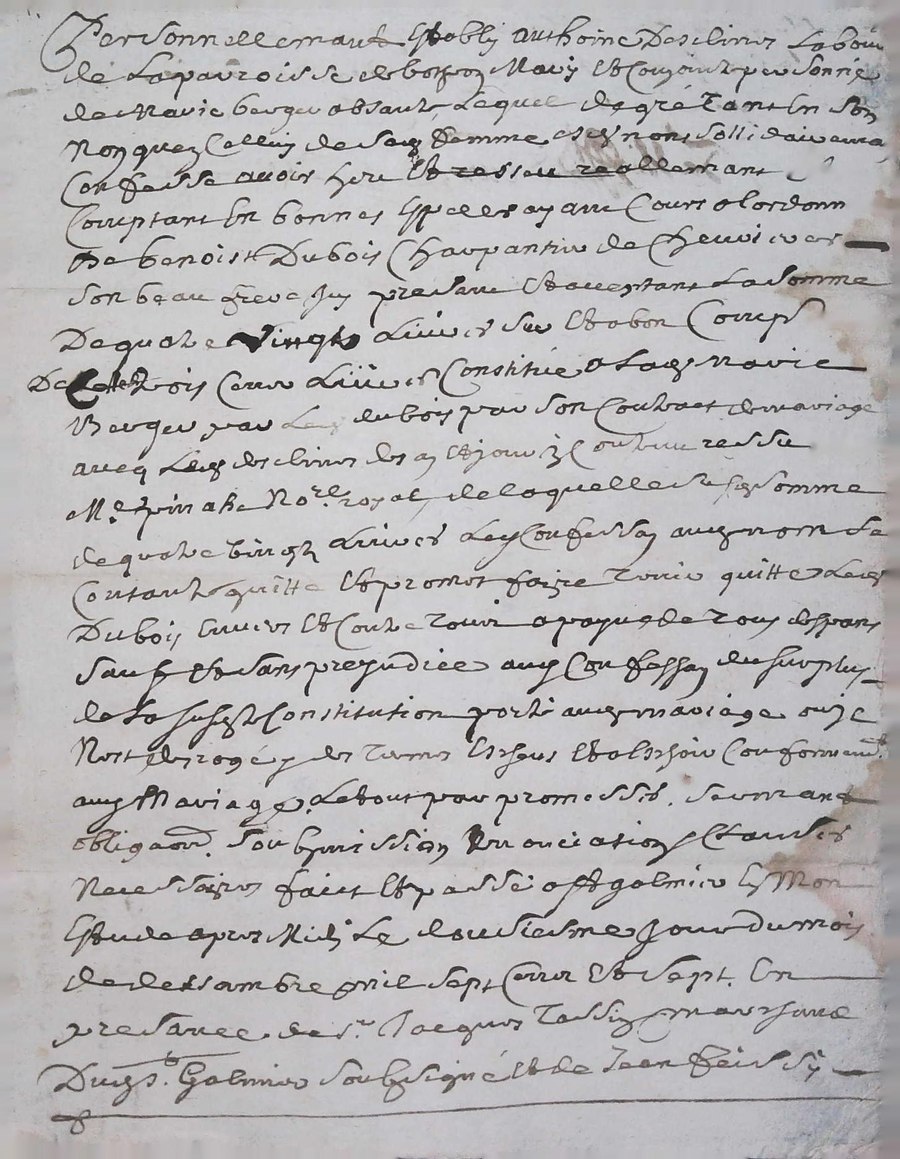 Personnellemant Estably anthoine Desclines Labour
de La parroisse de Mary Et Conjoint personne
de Marie berger absante, Lequel de gré Tant En Son
Non quez Celluy de Sad femme Et es nons sollidairema
Confesse avoir heu Et resseu reallemant
Comptant En bonnes Espesses ayant Cours a lordonn
De benoist Dubois Charpantier de Chevrieres
Son beau frere Icy presant Et aceptant La Somme
De quatre Vingts Livres Sur Et a bon Compt
De Celle trois Cent Livres Constitué a Lad Marie
Berger par Led dubois par Son Contract de mariage
aveq Led desclines des an Et jour y Contenu ressu
Me Nore royal, de laquelle susd Somme
de quatre vingts Livres Led Confessan aud nom Se
Contant quitte Et promet faire Tenir quitte Led
Dubois Envers Et Contre Tous a payne de Tous despans
Sauf Et Sans prejudice aud Confessan du Surplus
de La susd Constitution porté aud mariage ou Il
Nest desrogé y des Termes Escheus Et a Eschoir Conformemt
aud Mariage. Le tout par promesses, Sermant
obligaon. Soubmission Renonciation Clauses
Necessaires fait Et passé a St galmier En Mon
Estude apres Midi Le dousiesme Jour Du mois
de dessambre mil sept Cent Et Sept. En
presance de Sr. Jacques marchand
Dud St. Galmier Soubsigné Et de Jean